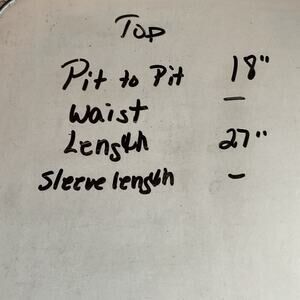 Top
Pit to Pit 18"
Waist –
Length 27"
Sleeve length –